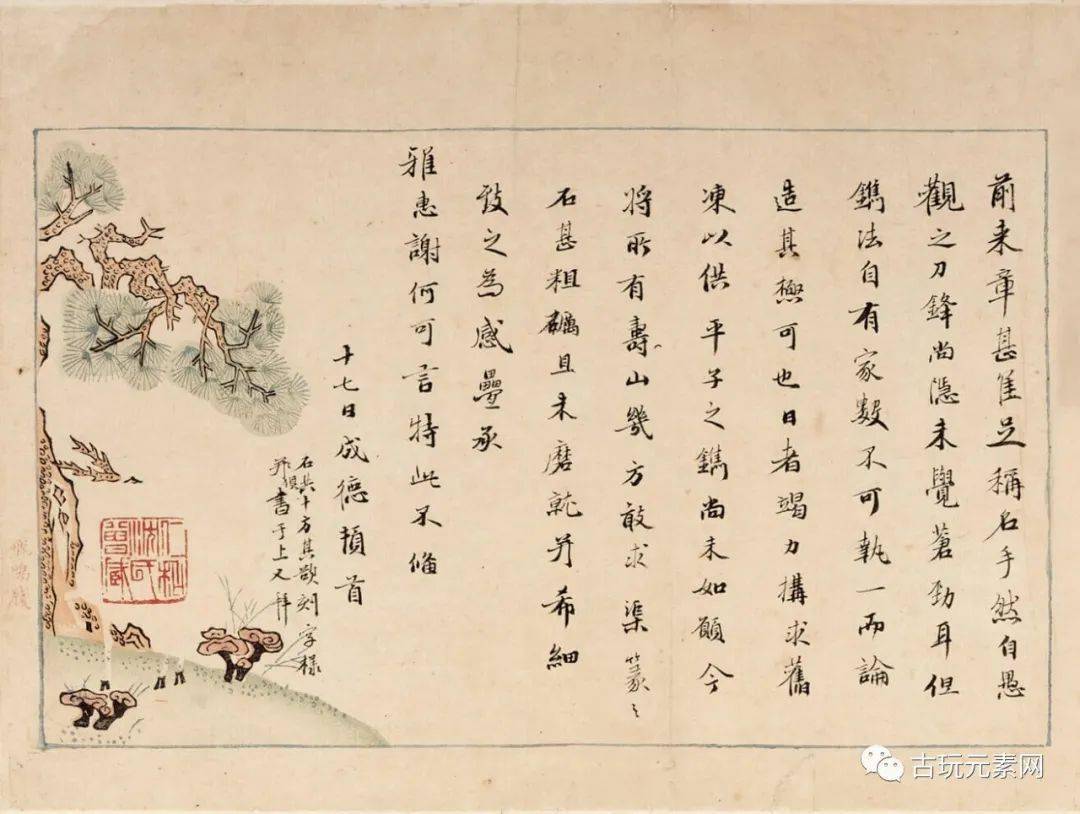 前来章甚佳足稱名手然自愚
觀之刀鋒尚隱未覺蒼勁耳但
鐫法自有家數不可執一而論
造其極可也日者竭力搆求舊
凍以供平子之鐫尚未如願今
將所有壽山幾方敢求渠篆之
石甚粗礪且未磨就並希細
致之為感疊承
雅惠謝何可言特此不備
十七日成德頓首
石共十方其欲刻字樣
俱書于上又拜
仁和沈氏曾藏
古玩元素网